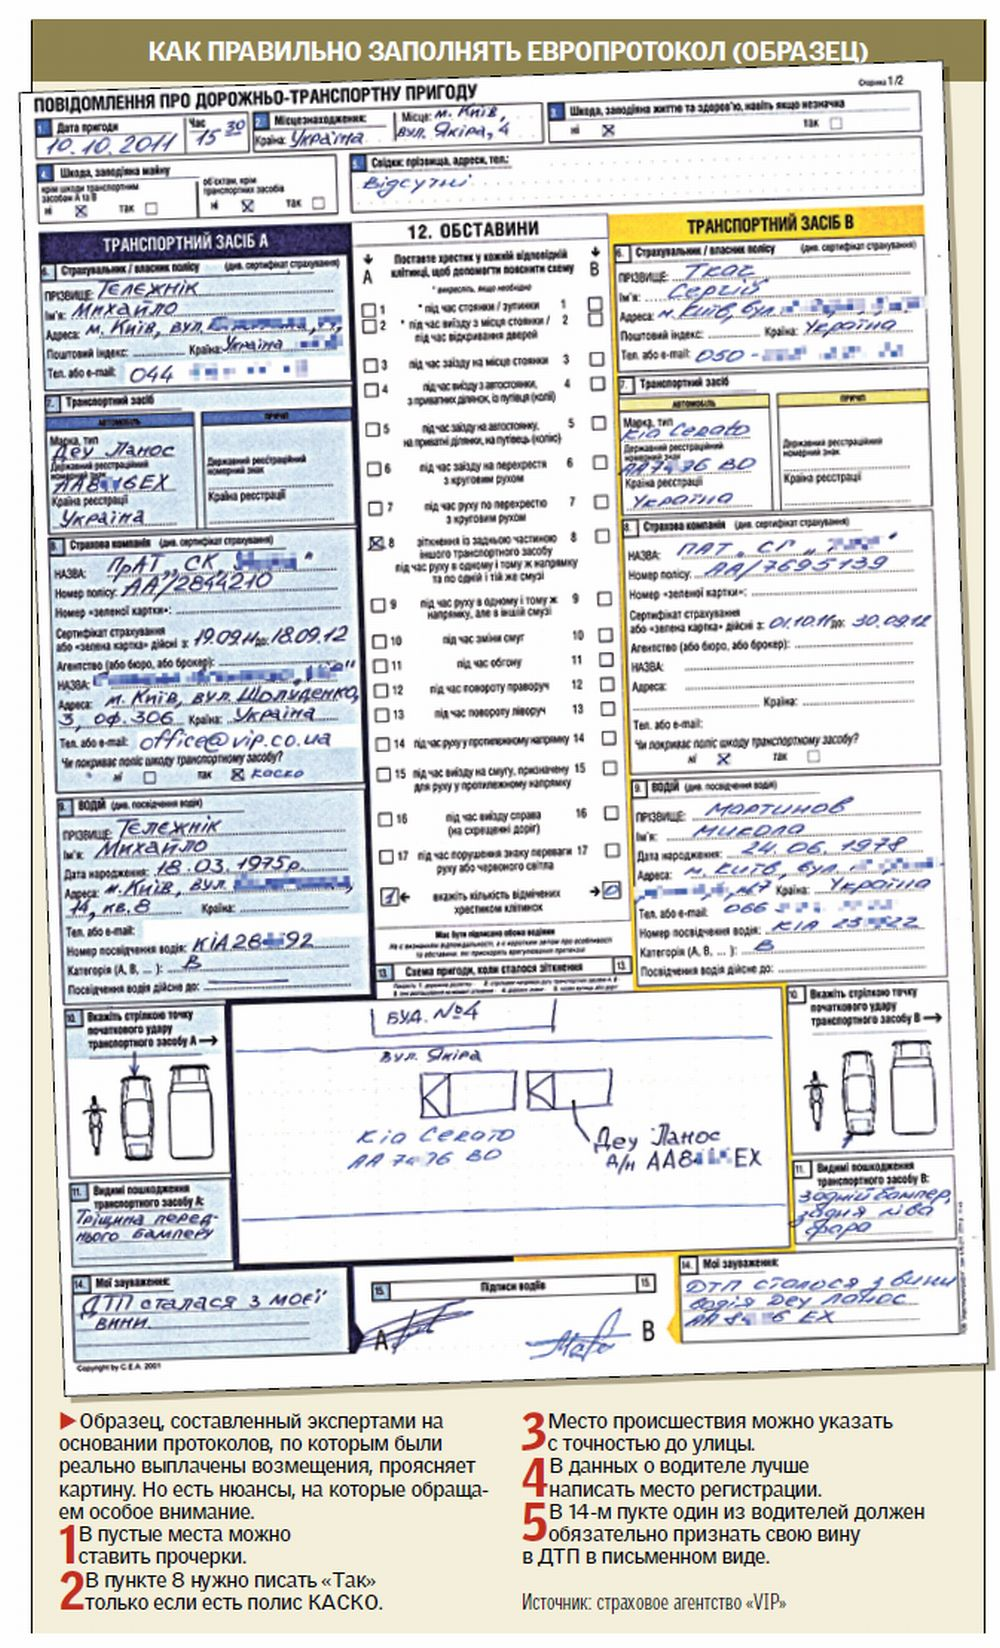 КАК ПРАВИЛЬНО ЗАПОЛНЯТЬ ЕВРОПРОТОКОЛ (ОБРАЗЕЦ)
Сторінка 1/2
ПОВІДОМЛЕННЯ ПРО ДОРОЖНЬО-ТРАНСПОРТНУ ПРИГОДУ
1. Дата пригоди
10.10.2011
Час
15 30
2. Місцезнаходження:
Країна: Україна
Місце: м. Київ,
вул. Якіра, 4
3. Шкода, заподіяна життю та здоров'ю, навіть якщо незначна
ні так
4. Шкода, заподіяна майну
крім шкоди транспортним
засобам А та В
ні так
об'єктам, крім
транспортних засобів
ні так
5. Свідки: прізвища, адреси, тел.:
Відсутні
ТРАНСПОРТНИЙ ЗАСІБ А
6. Страхувальник / власник полісу (див. сертифікат страхування)
ПРІЗВИЩЕ: Тележнік
Ім'я: Михайло
Адреса: м. Київ, вул.
Поштовий індекс: Країна: Україна
Тел. або e-mail: 044
7. Транспортний засіб
АВТОМОБІЛЬ
Марка, тип
Деу Ланос
Державний реєстраційний
номерний знак
АА8 6ЕХ
Країна реєстрації
Україна
ПРИЧІП
Державний реєстраційний
номерний знак
Країна реєстрації
8. Страхова компанія (див. сертифікат страхування)
НАЗВА: ПрАТ „СК „ "
Номер полісу: АА/2844210
Номер «зеленої картки»:
Сертифікат страхування
або «зелена картка» дійсні з: 19.09.11 до: 18.09.12
Агентство (або бюро, або брокер):
НАЗВА:
Адреса: м. Київ, вул. Шолуденко,
3, оф. 306 Країна: Україна
Тел. або e-mail: office@vip.co.ua
Чи покриває поліс шкоду транспортному засобу?
ні так каско
9. ВОДІЙ (див. посвідчення водія)
ПРІЗВИЩЕ: Тележнік
Ім'я: Михайло
Дата народження: 18.03.1975р.
Адреса: м. Київ, вул.
14, кв. 8 Країна:
Тел. або e-mail:
Номер посвідчення водія: КІА28 92
Категорія (А, В, ... ): В
Посвідчення водія дійсне до:
12. ОБСТАВИНИ
А Поставте хрестик у кожній відповідній В
клітинці, щоб допомогти пояснити схему
* викресліть, якщо необхідно
1 * під час стоянки / зупинки 1
2 * під час виїзду з місця стоянки / 2
під час відкривання дверей
3 під час заїзду на місце стоянки 3
4 під час виїзду з автостоянки, 4
з приватних ділянок, із путівця (колії)
5 під час заїзду на автостоянку, 5
на приватні ділянки, на путівець (колію)
6 під час заїзду на перехрестя 6
з круговим рухом
7 під час руху по перехрестю 7
з круговим рухом
8 зіткнення із задньою частиною 8
іншого транспортного засобу
під час руху в одному і тому ж напрямку
та по одній і тій же смузі
9 під час руху в одному і тому ж 9
напрямку, але в іншій смузі
10 під час зміни смуг 10
11 під час обгону 11
12 під час повороту праворуч 12
13 під час повороту ліворуч 13
14 під час руху у протилежному напрямку 14
15 під час виїзду на смугу, призначену 15
для руху у протилежному напрямку
16 під час виїзду справа 16
(на схрещенні доріг)
17 під час порушення знаку переваги 17
руху або червоного світла
1 вкажіть кількість відмічених 0
хрестиком клітинок
Має бути підписано обома водіями
13. Схема пригоди, коли сталося зіткнення 13.
ТРАНСПОРТНИЙ ЗАСІБ В
6. Страхувальник / власник полісу (див. сертифікат страхування)
ПРІЗВИЩЕ: Ткач
Ім'я: Сергій
Адреса: м. Київ, вул.
Поштовий індекс: Країна: Україна
Тел. або e-mail: 050 -
7. Транспортний засіб
АВТОМОБІЛЬ
Марка, тип
Kia Cerato
Державний реєстраційний
номерний знак
АА7 76 ВО
Країна реєстрації
Україна
ПРИЧІП
Державний реєстраційний
номерний знак
Країна реєстрації
8. Страхова компанія (див. сертифікат страхування)
НАЗВА: ПАТ „СГ „ "
Номер полісу: АА/7695139
Номер «зеленої картки»:
Сертифікат страхування
або «зелена картка» дійсні з: 01.10.11 до: 30.09.12
Агентство (або бюро, або брокер):
НАЗВА:
Адреса:
Країна:
Тел. або e-mail:
Чи покриває поліс шкоду транспортному засобу?
ні так
9. ВОДІЙ (див. посвідчення водія)
ПРІЗВИЩЕ: Мартинов
Ім'я: Микола
Дата народження: 24.06.1978
Адреса: м. Київ, вул.
Країна: Україна
Тел. або e-mail: 066
Номер посвідчення водія: КІА 23 22
Категорія (А, В, ... ): В
Посвідчення водія дійсне до:
10. Вкажіть стрілкою точку
початкового удару
транспортного засобу А
БУД. №4
вул. Якіра
Kia Cerato
АА 7 76 ВО
Деу Ланос
д/н АА8 ЕХ
10. Вкажіть стрілкою точку
початкового удару
транспортного засобу В
11. Видимі пошкодження
транспортного засобу А:
Тріщина перед-
нього бамперу
11. Видимі пошкодження
транспортного засобу В:
Задній бампер,
задня ліва
фара
14. Мої зауваження:
ДТП сталася з моєї
вини.
15. Підписи водіїв 15.
А В
14. Мої зауваження:
ДТП сталося з вини
водія Деу Ланос
АА 84 6 ЕХ
Copyright by C.E.A. 2001
Образец, составленный экспертами на
основании протоколов, по которым были
реально выплачены возмещения, проясняет
картину. Но есть нюансы, на которые обраща-
ем особое внимание.
1 В пустые места можно
ставить прочерки.
2 В пункте 8 нужно писать «Так»
только если есть полис КАСКО.
3 Место происшествия можно указать
с точностью до улицы.
4 В данных о водителе лучше
написать место регистрации.
5 В 14-м пукте один из водителей должен
обязательно признать свою вину
в ДТП в письменном виде.
Источник: страховое агентство «VIP»